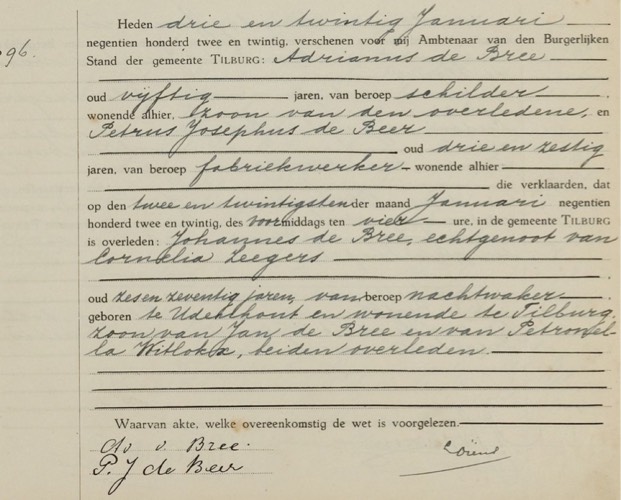 Heden drie en twintig Januari
negentien honderd twee en twintig, verschenen voor mij Ambtenaar van den Burgerlijken
96.
Stand der gemeente TILBURG: Adrianus de Bree
oud vijftig jaren, van beroep schilder
wonende alhier, zoon van den overledene, en
Petrus Josephus de Beer
oud drie en zestig
jaren, van beroep fabriekwerker wonende alhier
die verklaarden, dat
op den twee en twintigsten der maand Januari negentien
honderd twee en twintig, des voormiddags ten vier ure, in de gemeente TILBURG
is overleden: Johannes de Bree, echtgenoot van
Cornelia Zeegers
oud zes en zeventig jaren, van beroep nachtwaker
geboren te Udenhout en wonende te Tilburg,
zoon van Jan de Bree en van Petronel-
la Witlox, beiden overleden.
Waarvan akte, welke overeenkomstig de wet is voorgelezen.
Bree.
P. J de Beer